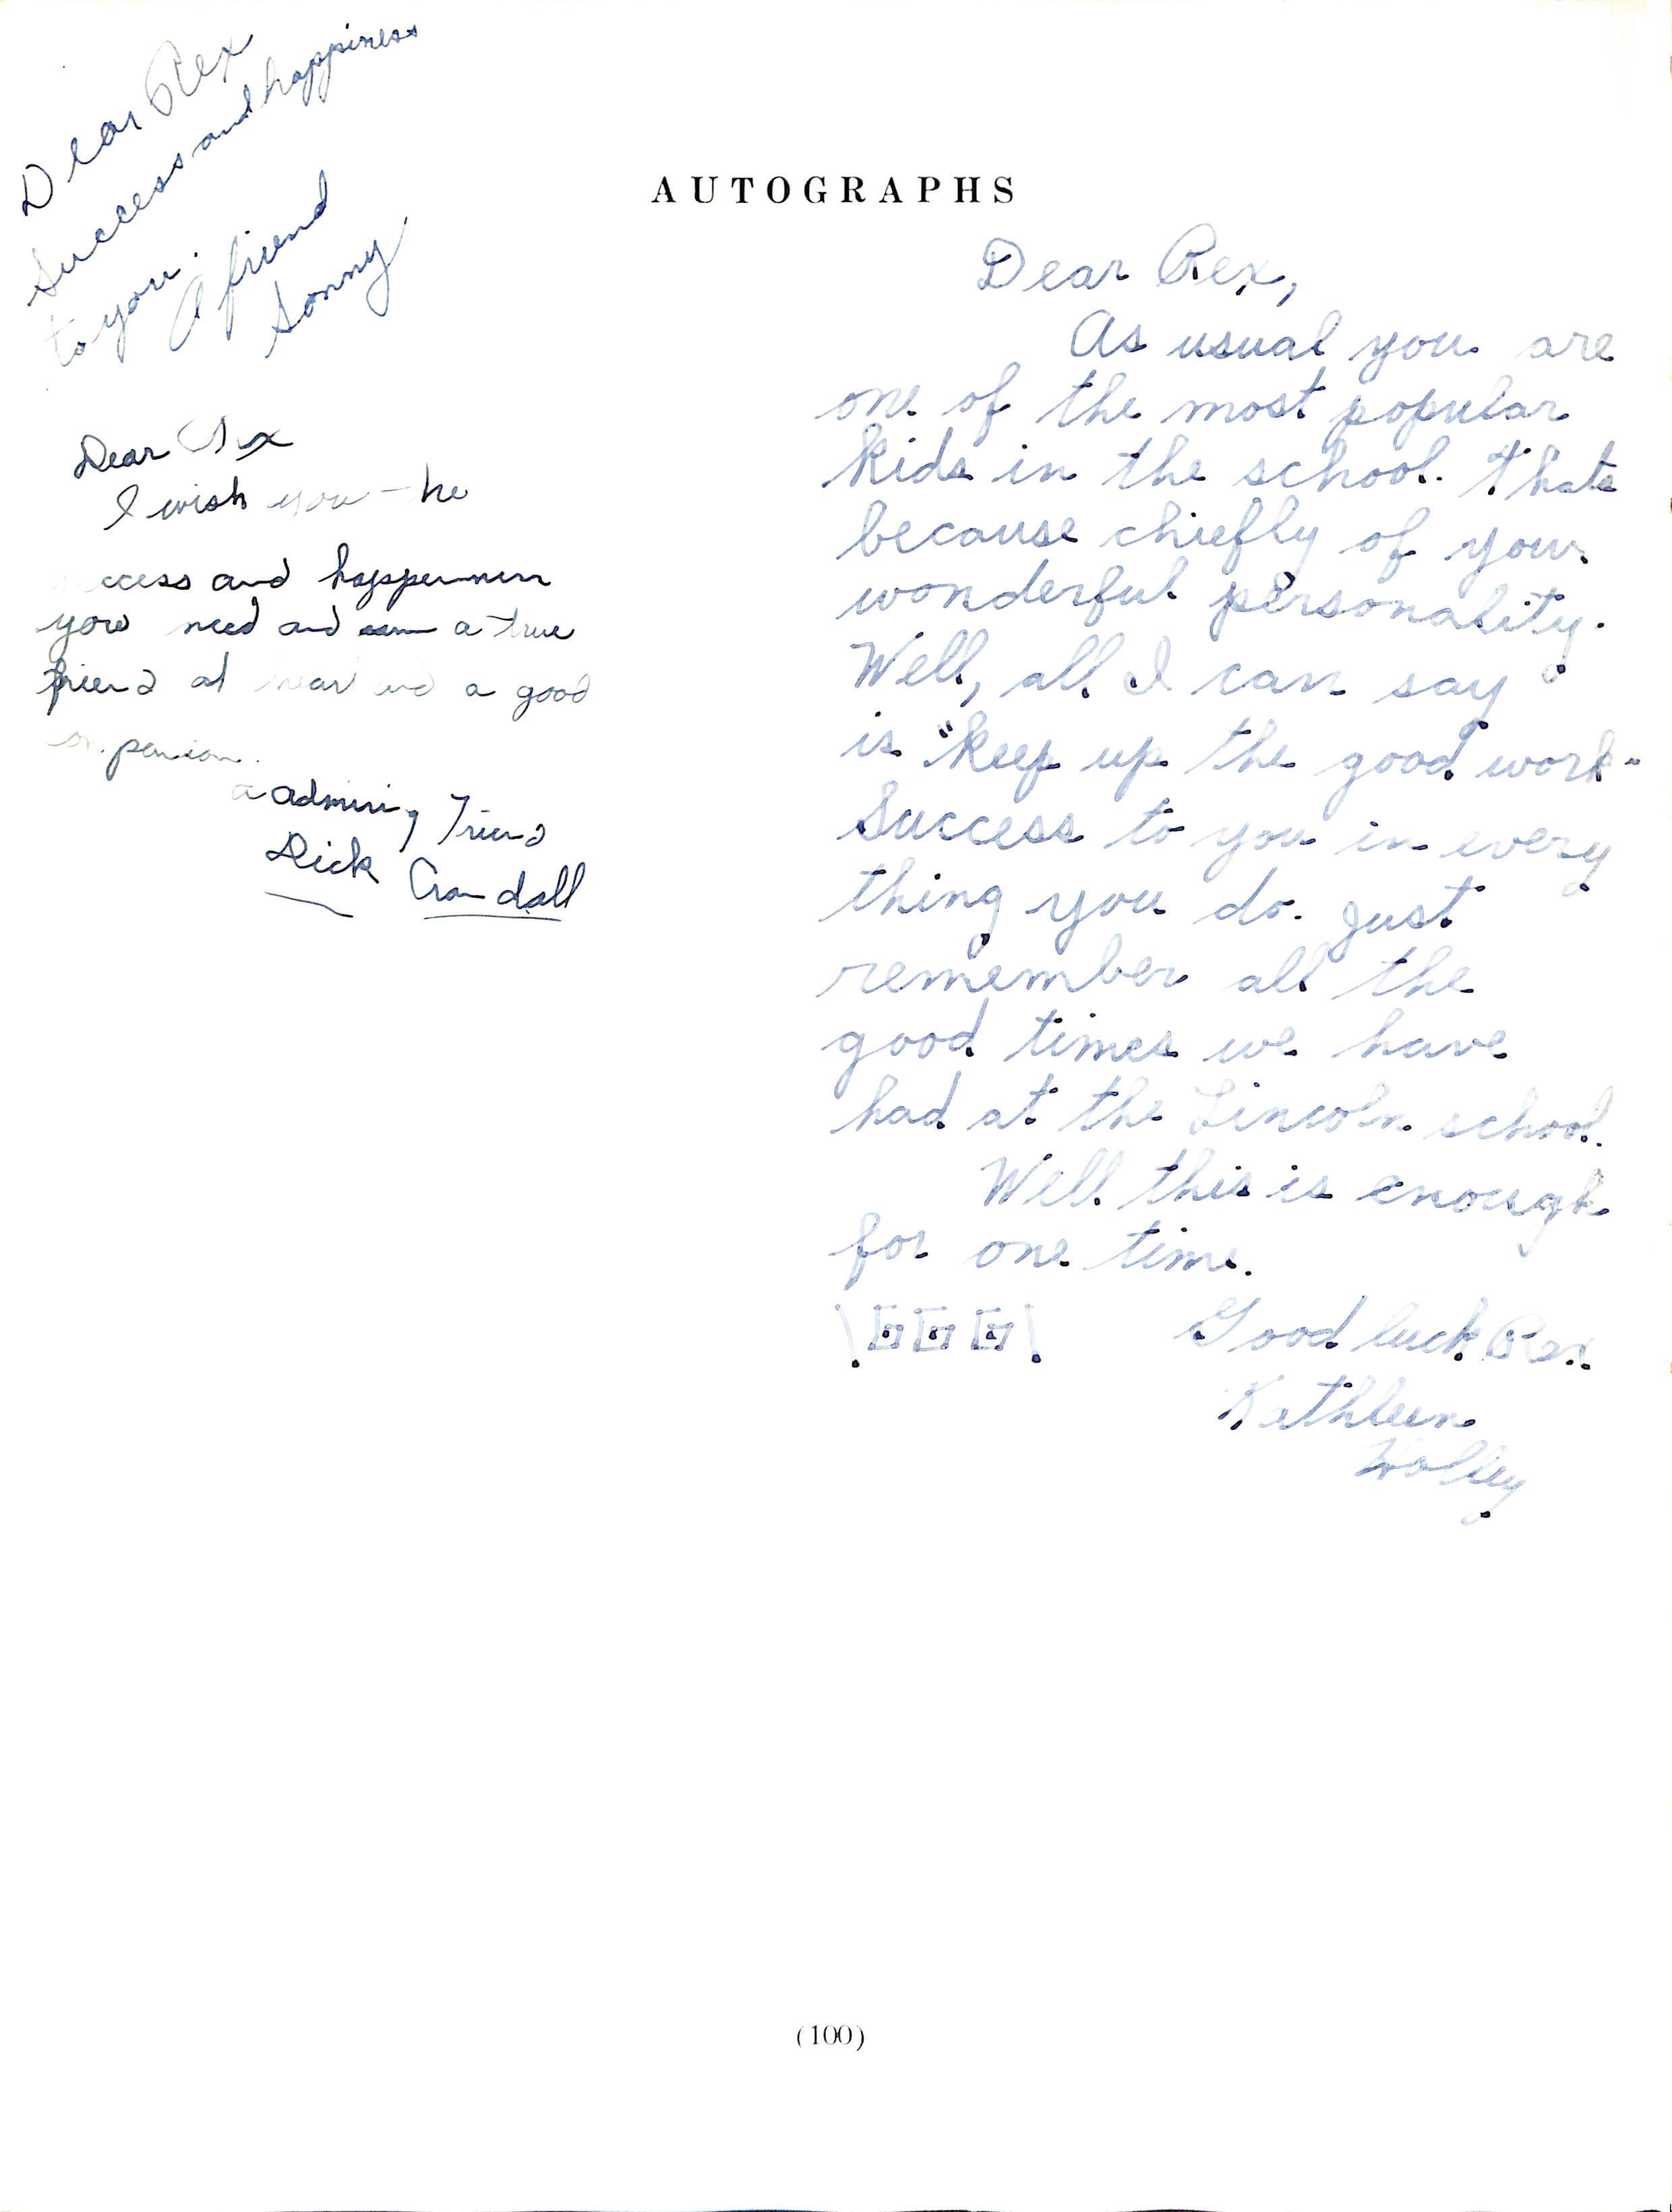 AUTOGRAPHS
Dear Rex
Success and happiness
to you.
A friend
Sonny
Dear Rex
I wish you the
ccess and
you need and a true
friend at heart and a good
a admiring Friend
Dick Crandall
Dear Rex,
As usual you are
one of the most popular
kids in the school. Thats
because chiefly of your
wonderful personality.
Well, all I can say
is "keep up the good work"
Success to you in every
thing you do. Just
remember all the
good times we have
had at the Lincoln school.
Well this is enough
for one time.
Good luck Rex
Kathleen
Holley
(100)